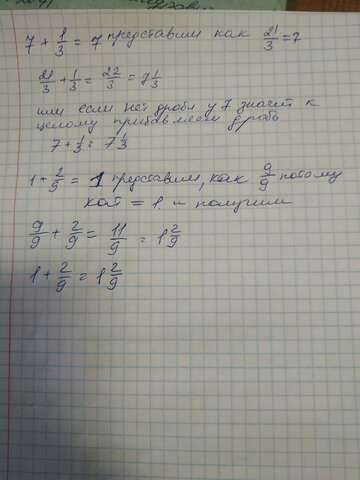 7 + 1/3 = 7 представим как 21/3 = 7
21/3 + 1/3 = 22/3 = 7 1/3
или если нет дроби у 7 значит к
целому прибавляем дробь
7 + 1/3 = 7 1/3
1 + 2/9 = 1 представим, как 9/9 потому
= 1. и получим
9/9 + 2/9 = 11/9 = 1 2/9
1 + 2/9 = 1 2/9